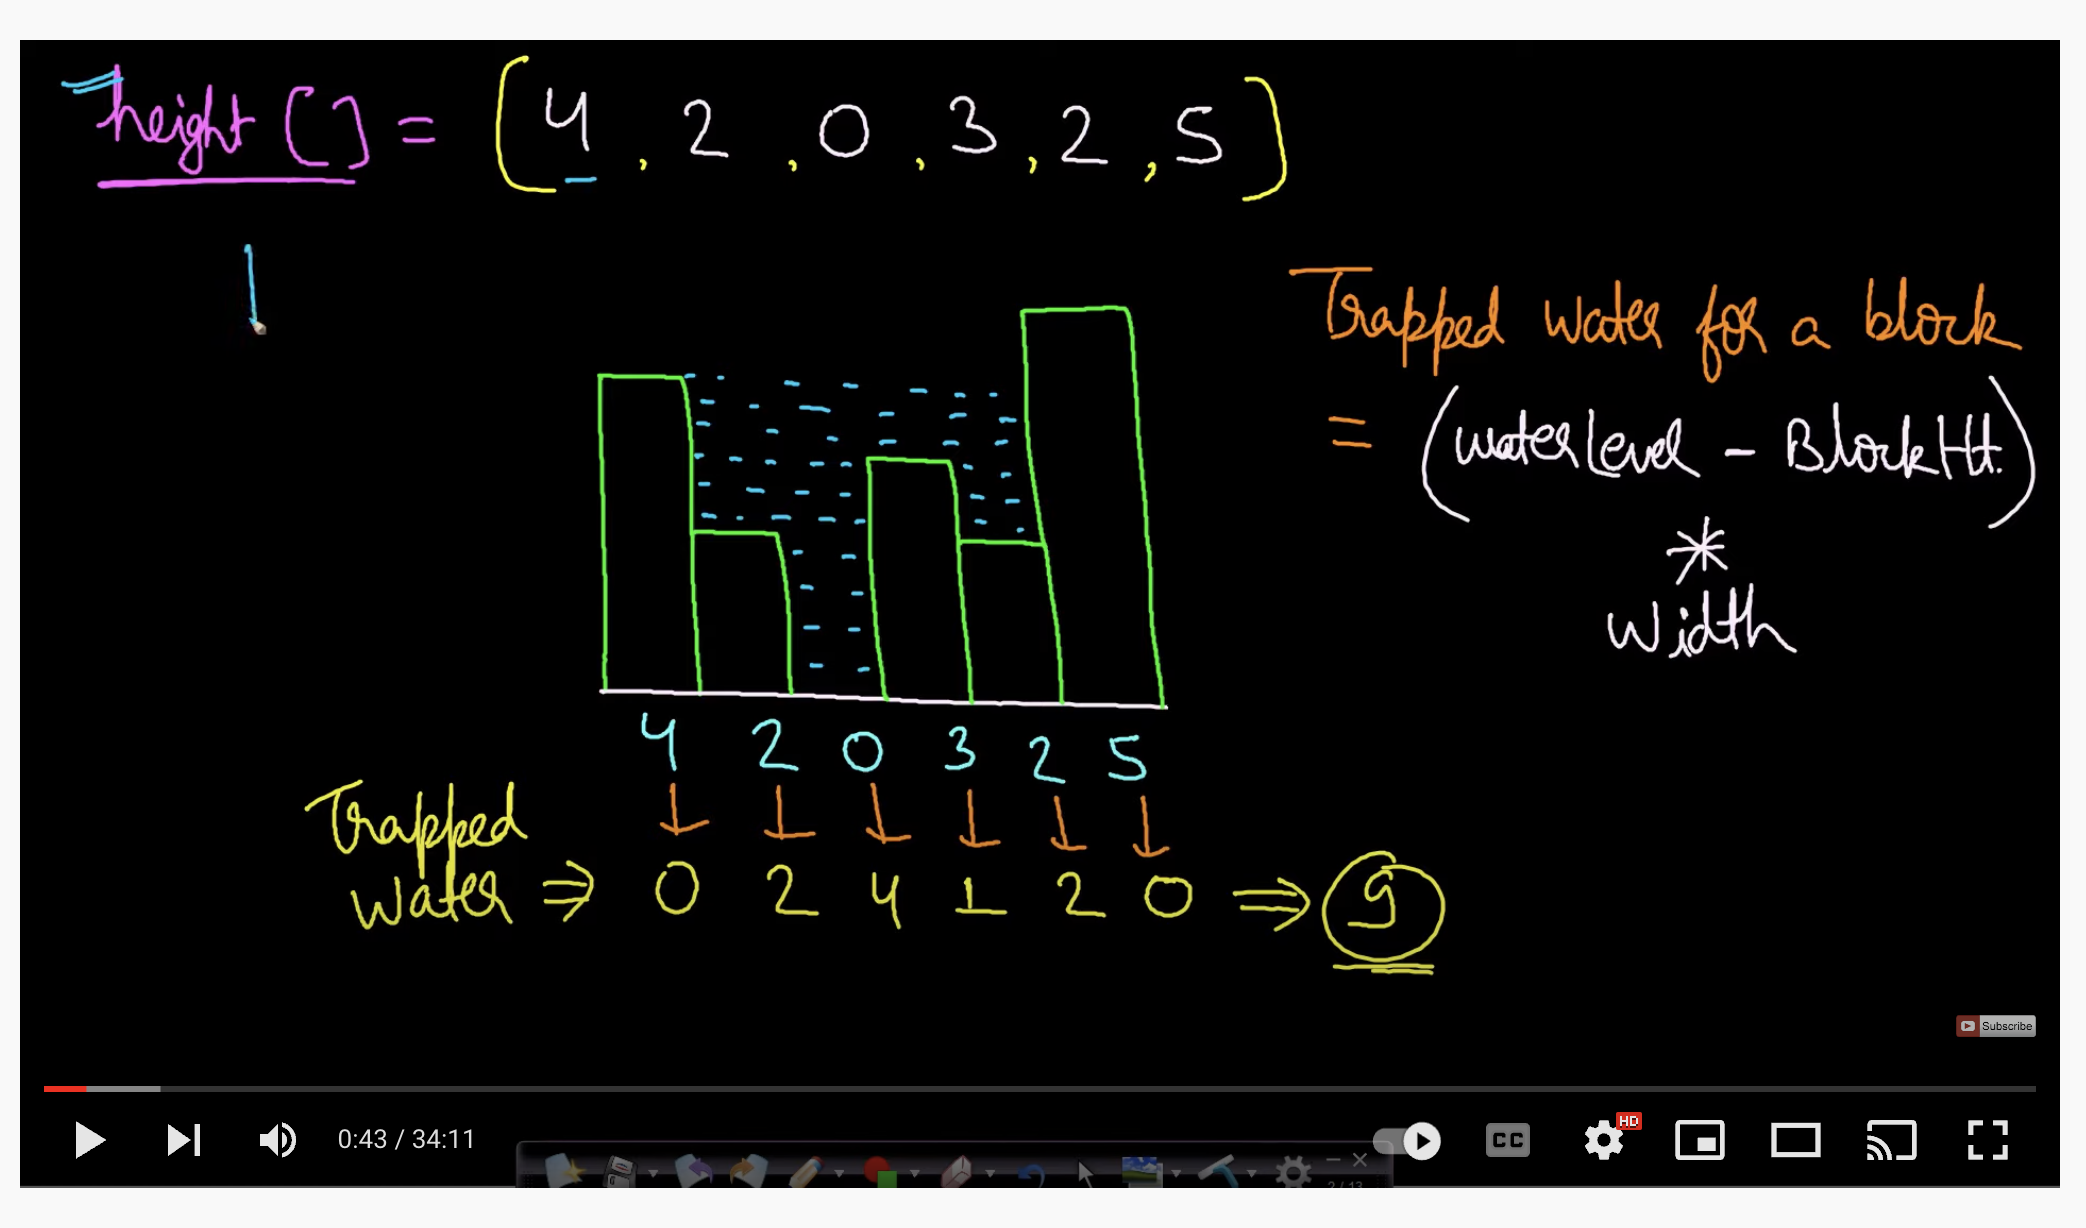 height [ ] = [ 4 , 2 , 0 , 3 , 2 , 5 ]
Trapped water for a block
= (waterLevel - BlockHt.)
*
width
4 2 0 3 2 5
Trapped
water ⇒ 0 2 4 1 2 0 ⇒ 9
Subscribe
0:43 / 34:11
CC
HD
2 / 13